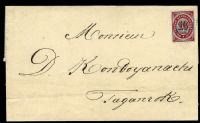 Monsieur
D. Konboyanachi
Taganrok